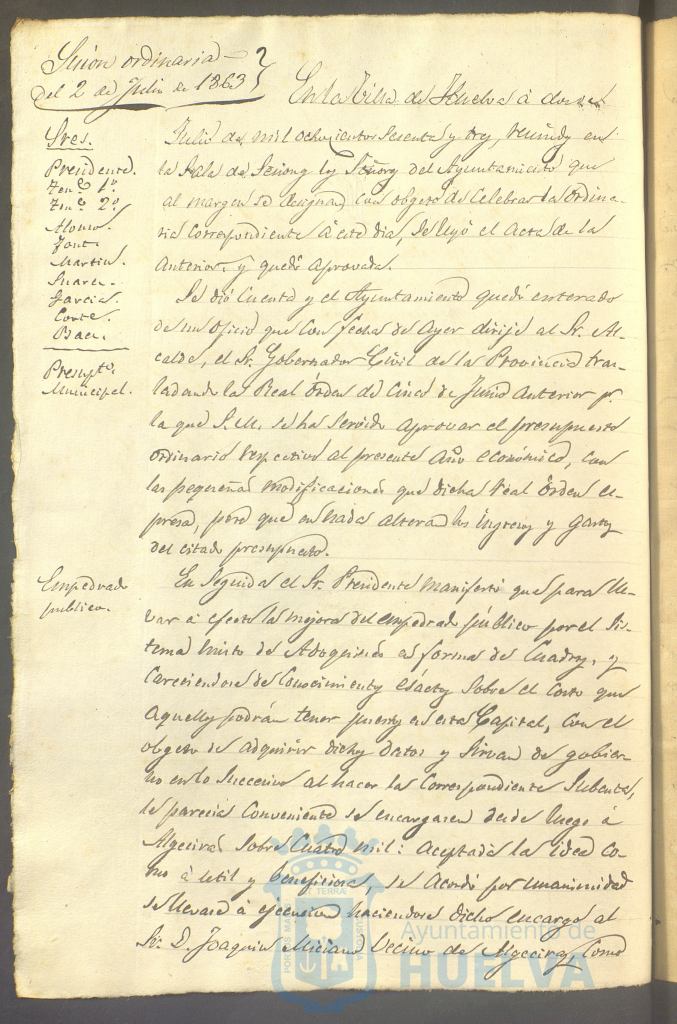 Sesion ordinaria
del 2 de Julio de 1863
Sres.
Presidente.
Ten.e 1º
Ten.e 2º
Alonso.
Font.
Martin.
Suarez.
Garcia.
Corte.
Baez.
Presupto.
Municipal.
Empedrado
publico.
En la Villa de Huelva á dos de
Julio de mil ochocientos sesenta y tres, reunidos en
la Sala de Sesiones los Señores del Ayuntamiento que
al margen se designan con objeto de celebrar la ordina-
ria correspondiente á este dia, se leyó el Acta de la
anterior, y quedó aprovada.
Se dió cuenta y el Ayuntamiento quedó enterado
de un oficio que con fecha de ayer dirije al Sr. Al-
calde, el Sr. Gobernador Civil de la Provincia tras-
ladando la Real órden de cinco de Junio anterior pr.
la que S. M. se ha servido aprovar el presupuesto
ordinario respectivo al presente año económico, con
las pequeñas modificaciones que dicha real órden es-
presa, pero que en nada alteran los ingresos y gastos
del citado presupuesto.
En seguida el Sr. Presidente manifestó que para lle-
var á efecto la mejora del empedrado público por el sis-
tema misto de Adoquines en forma de cuadros, y
careciendose de conocimientos esactos sobre el costo que
aquellos podrán tener puestos en esta Capital, con el
objeto de adquirir dichos datos y sirvan de gobier-
no en lo succesivo al hacer la correspondiente Subasta,
le parecia conveniente se encargasen desde luego á
Algeciras sobre cuatro mil: aceptada la idea co-
mo á util y beneficiosa, se acordó por unanimidad
se llevase á ejecucion haciendose dicho encargo al
Sr. D. Joaquin Miciano vecino de Algeciras, como
PORTUS MARIS
ET TERRÆ
Ayuntamiento de
HUELVA